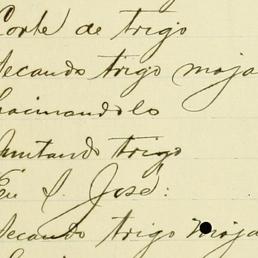 Corte de trigo
Secando trigo moja
Juntando trigo
En S. José:
Secando trigo moja